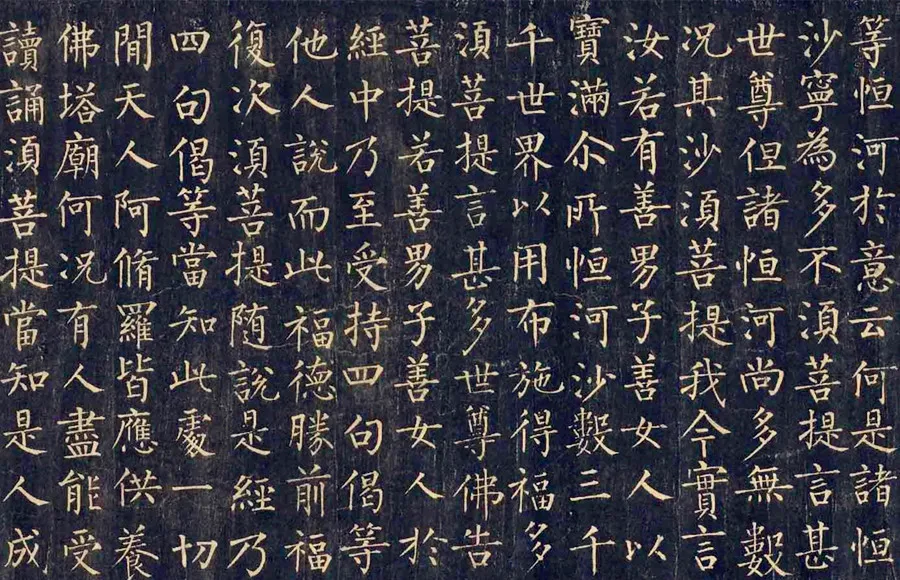 等恒河於意云何是諸恒
沙寧為多不湏菩提言甚
世尊但諸恒河尚多無數
况其沙湏菩提我今實言
汝若有善男子善女人以
寶滿尒所恒河沙數三千
千世界以用布施得福多
湏菩提言甚多世尊佛告
菩提若善男子善女人於
經中乃至受持四句偈等
他人說而此福德勝前福
復次湏菩提随說是經乃
四句偈等當知此處一切
間天人阿脩羅皆應供養
佛塔廟何况有人盡能受
讀誦湏菩提當知是人成